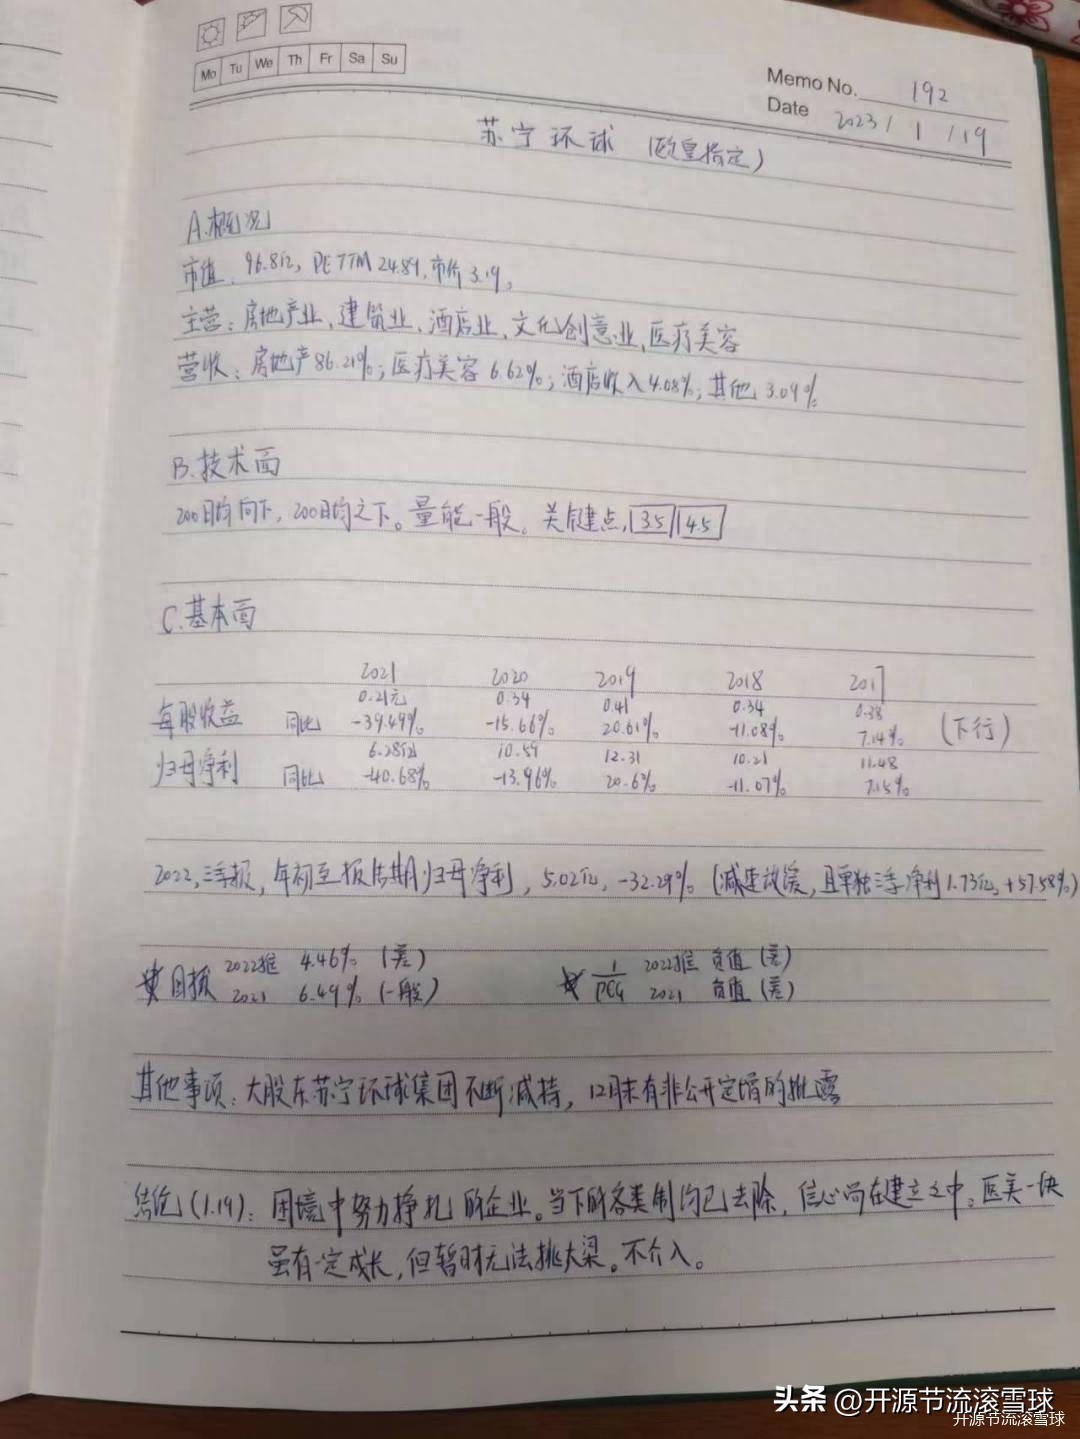 Mo Tu We Th Fr Sa Su
Memo No. 192
Date 2023 / 1 / 19
苏宁环球 (欧皇指定)
A.概况
市值:96.8亿, PE TTM 24.89, 市价 3.19,
主营:房地产业、建筑业、酒店业、文化创意业、医疗美容
营收:房地产86.21%;医疗美容 6.62%;酒店收入4.08%;其他 3.09%
B.技术面
200日均向下,200日均之下。量能一般。关键点, 3.5 4.5
C.基本面
2021 2020 2019 2018 2017
0.21元 0.34 0.41 0.34 0.38
每股收益 同比 -39.49% -15.66% 20.61% -11.08% 7.14% (下行)
6.28亿 10.59 12.31 10.21 11.48
归母净利 同比 -40.68% -13.96% 20.6% -11.07% 7.15%
2022,三季报,年初至报告期归母净利,5.02亿,-32.29% (减速放缓,且单独三季净利1.73亿,+57.58%)
目投 2022推 4.46% (差)
2021 6.49% (一般)
1/PEG 2022推 负值 (差)
2021 负值 (差)
其他事项:大股东苏宁环球集团不断减持,12月末有非公开定增的批露
结论(1.19):困境中努力挣扎的企业。当下的各类制约已去除,信心尚在建立之中。医美一块
虽有一定成长,但暂时无法挑大梁。不介入。
头条 @开源节流滚雪球
开源节流滚雪球